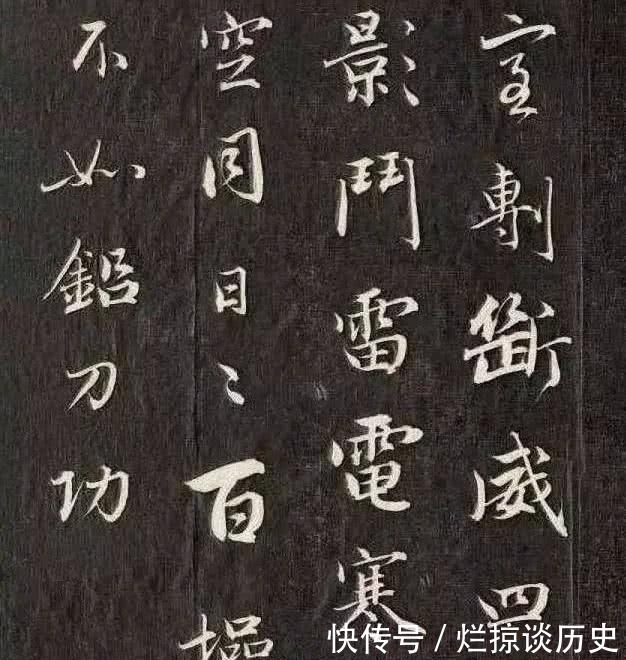 室剸斷威四
影鬥雷電寒
空同日〻百
不如鉛刀功
快传号/烂掠谈历史